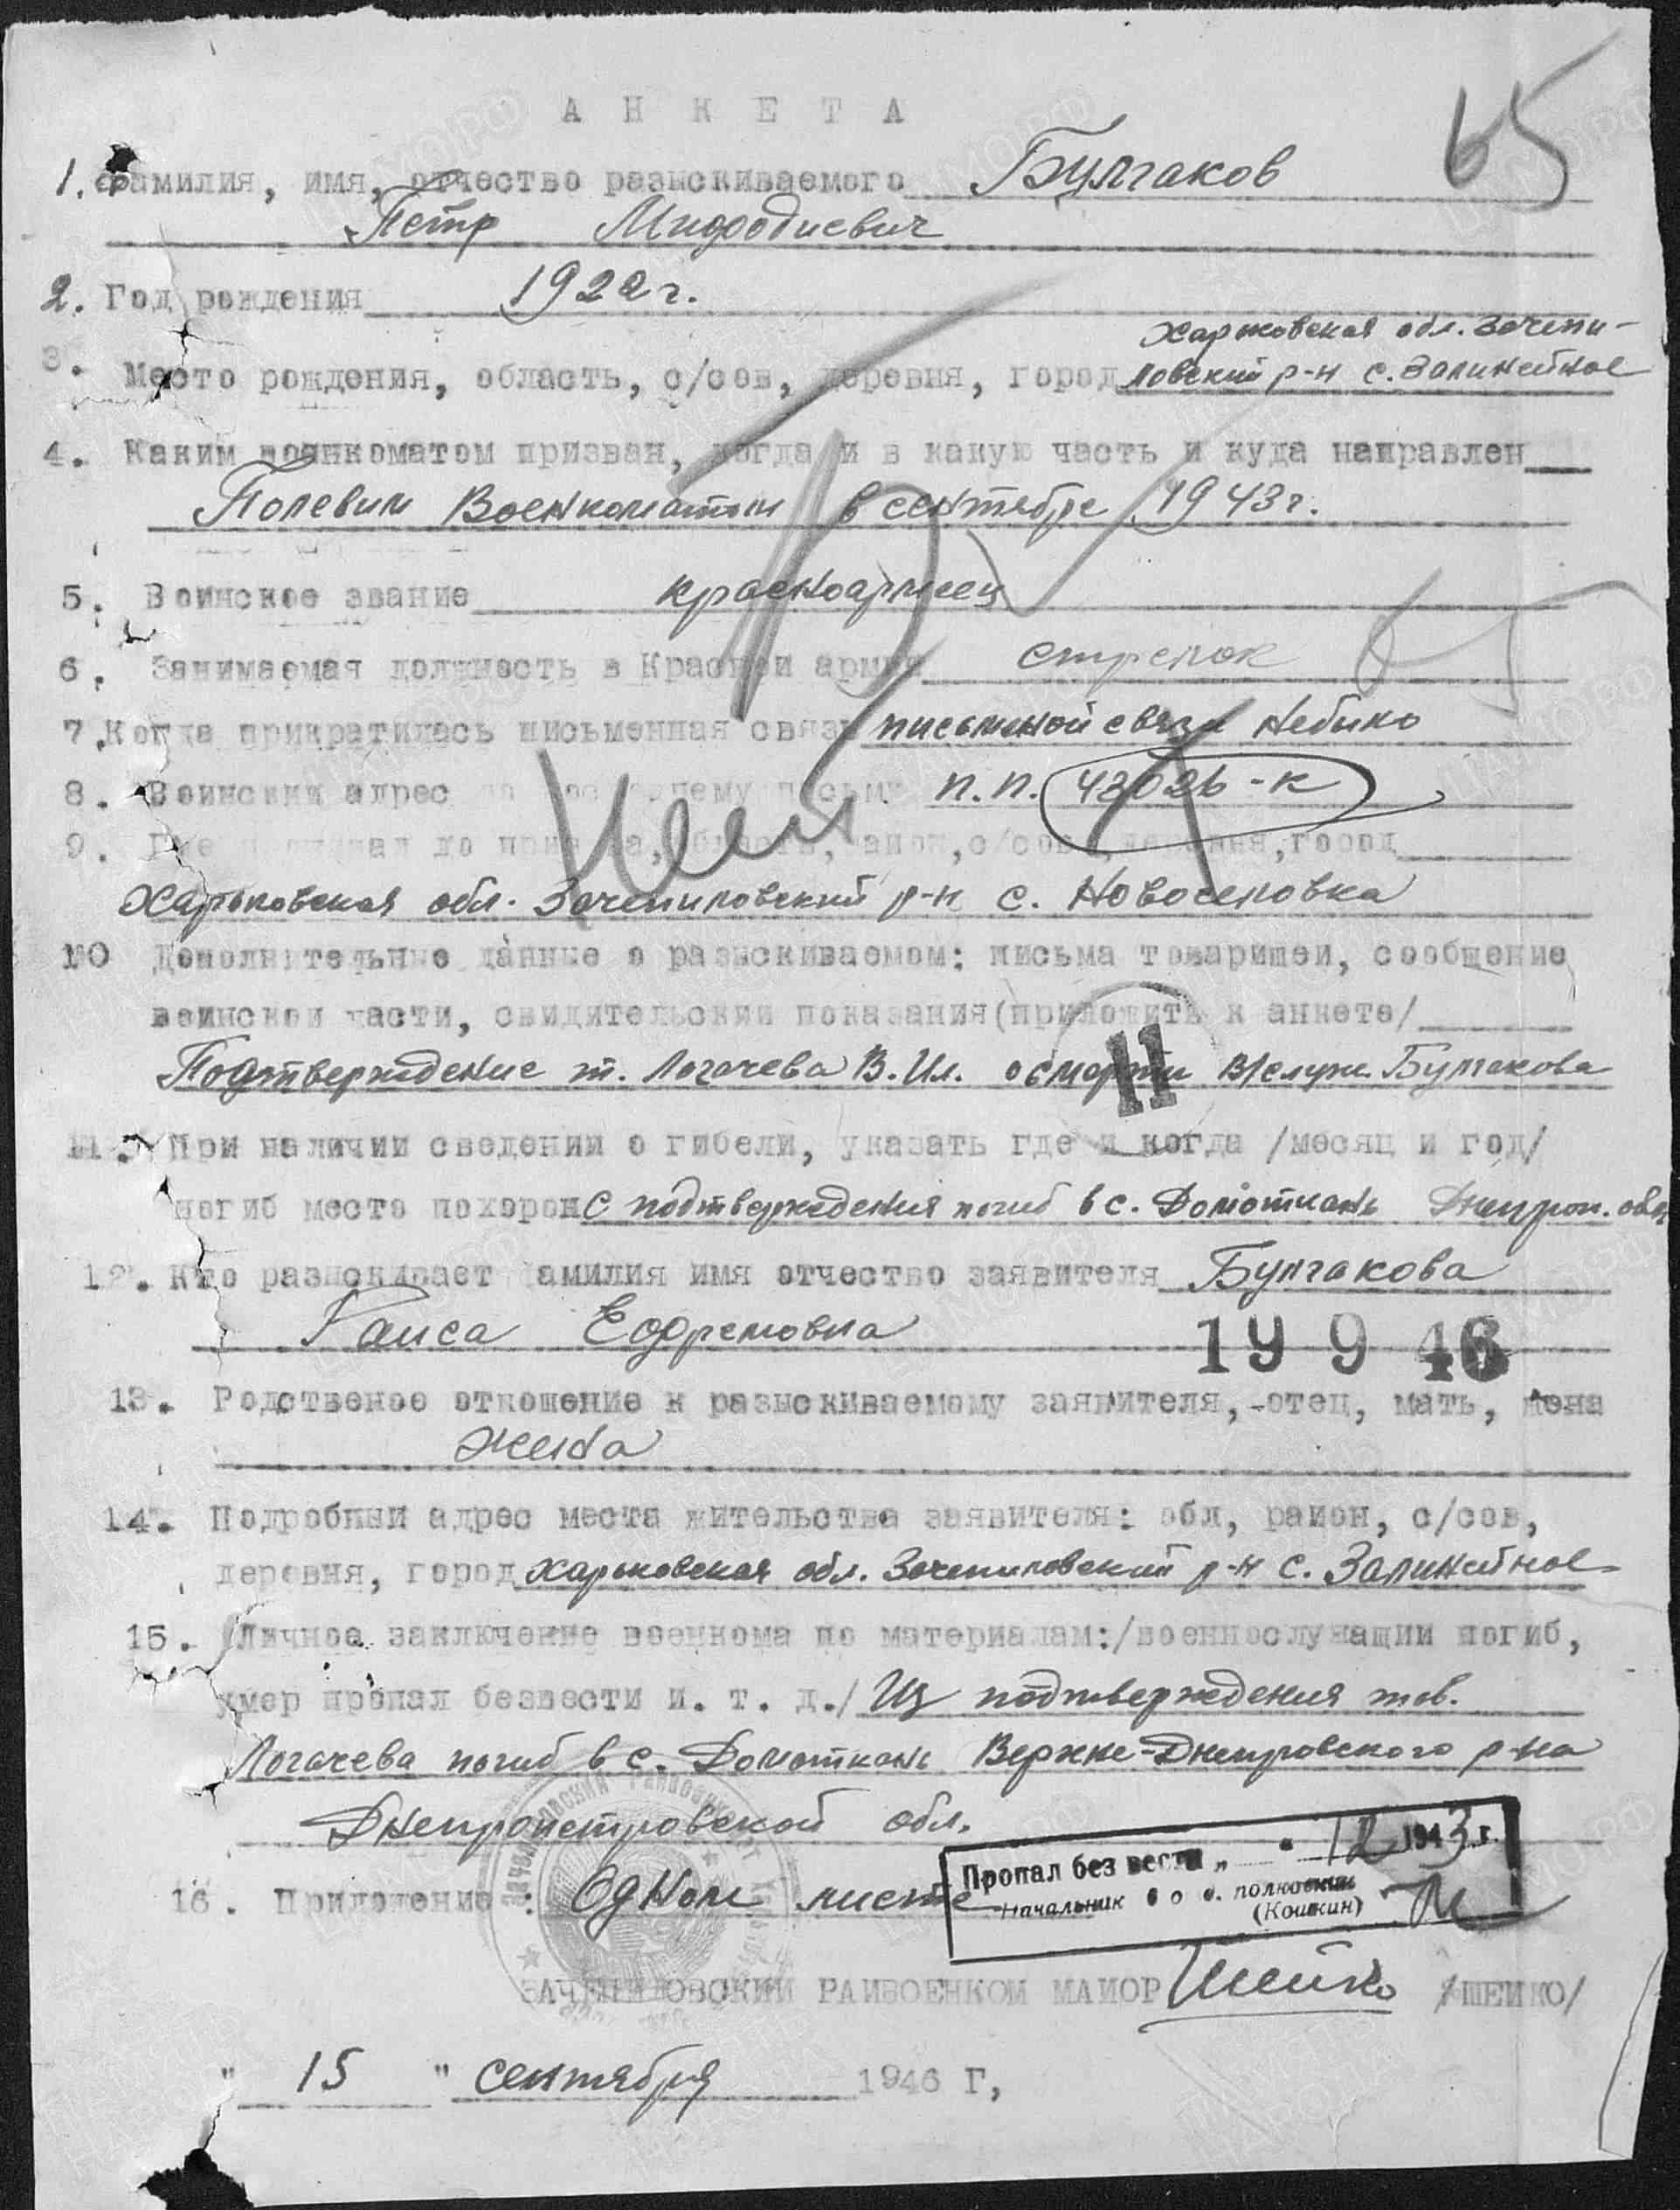 АНКЕТА
65
1. Фамилия, имя, отчество разыскиваемого Булгаков
Петр Мифодиевич
2. Год рождения 1922 г.
Харьковская обл. Зачепи-
3. Место рождения, область, с/сов, деревня, город ловский р-н с. Залинейное
4. Каким военкоматом призван, когда и в какую часть и куда направлен
Полевим Военкоматом в сентябре 1943 г.
5. Воинское звание красноармеец
6. Занимаемая должность в Красной армии стрелок
7. Когда прикратилась письменная связь письменой связи небыло
8. Воинский адрес по последнему письму п.п. 43026-к
9. Где проживал до призыва, область, район, с/сов, деревня, город
Харьковская обл. Зачепиловский р-н с. Новоселовка
10 Дополнительные данные о разыскиваемом: письма товарищей, сообщение
воинской части, свидительский показания (приложить к анкете/
Подтверждение т. Логачева В. Ил. о смерти в/служ. Булгакова
11
11. При наличии сведении о гибели, указать где и когда /месяц и год/
погиб место похорон С подтверждения погиб в с. Домоткань Днепроп. обл.
12. Кто разыскивает фамилия имя отчество заявителя Булгакова
Раиса Ефремовна
19 9 46
13. Родственое отношение к разыскиваемому заявителя,-отец, мать, жена
жена
14. Подробный адрес места жительства заявителя: обл, район, с/сов,
деревня, город Харьковская обл. Зачепиловский р-н с. Залинейное
15. /Личное заключение военкома по материалам:/военнослужащии погиб,
умер пропал безвести и. т. д./ Из подтверждения тов.
Логачева погиб в с. Домоткань Верхне-Днепровского р-на
Днепропетровской обл.
Пропал без вести „ " 12 1943 г.
16. Приложение: Одном листе
Начальник 6 о о. полковник
(Кошкин)
ЗАЧЕПИЛОВСКИЙ РАЙВОЕНКОМ МАЙОР Шейко /ШЕЙКО/
" 15 " сентября 1946 Г,